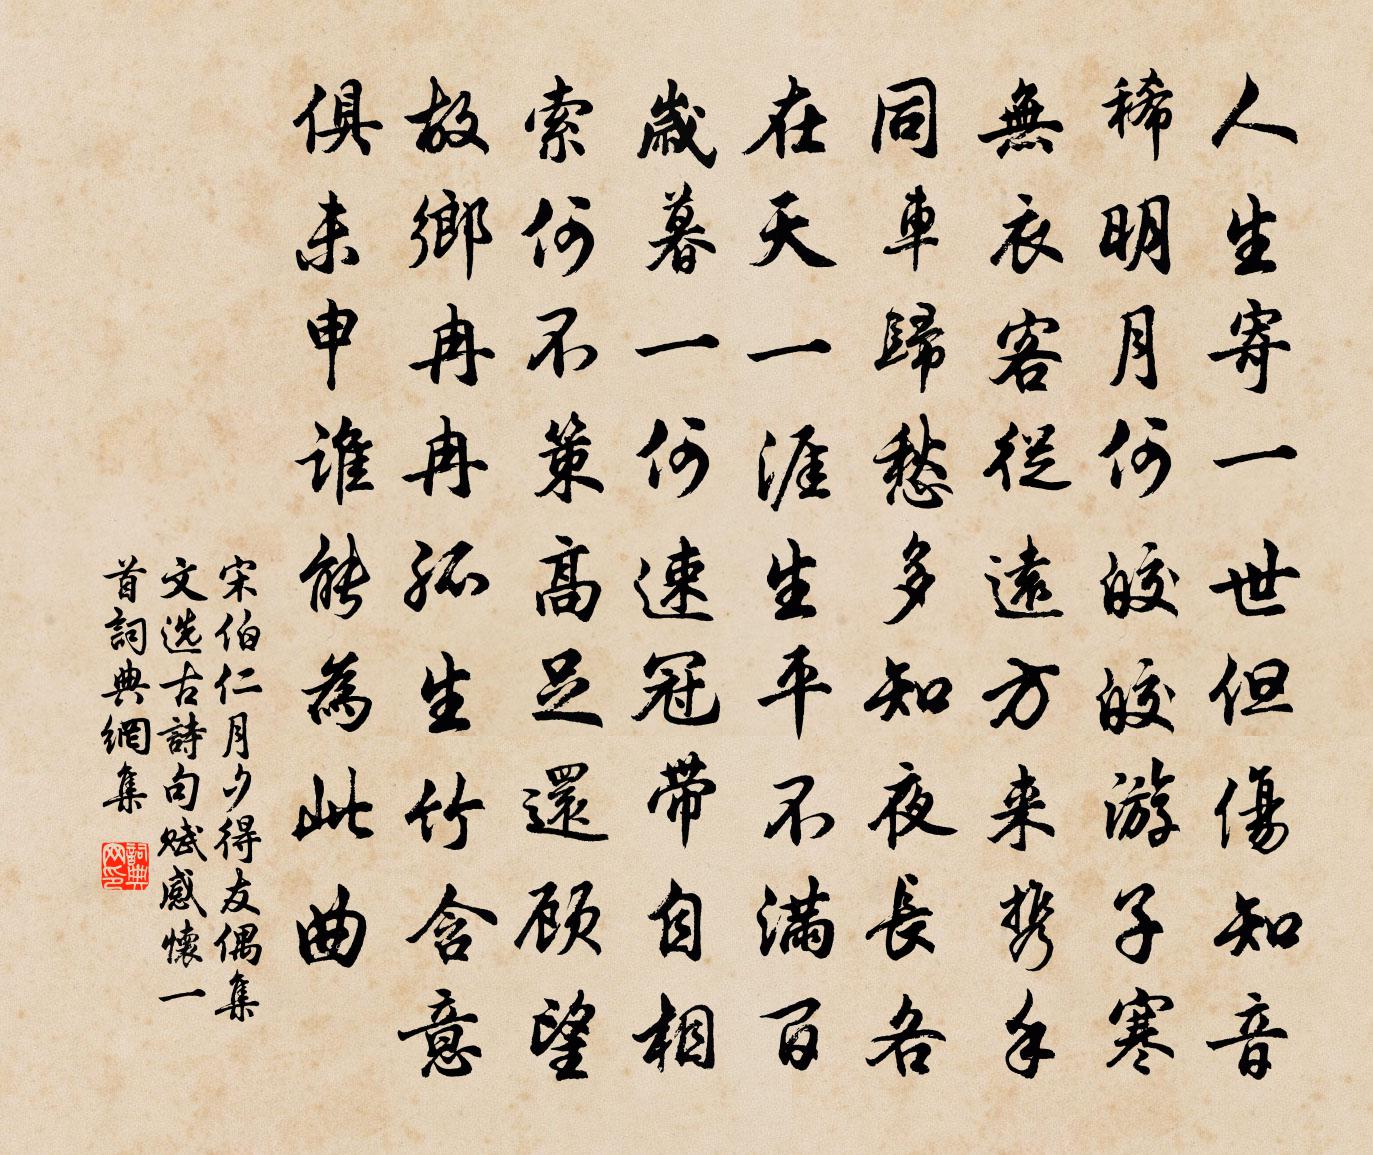 人生寄一世但傷知音
稀明月何皎皎游子寒
無衣客從遠方来携手
同車歸愁多知夜長各
在天一涯生平不滿百
歲暮一何速冠帶自相
索何不策高足還顾望
故鄉冉冉孤生竹含意
俱未申誰能為此曲
宋伯仁月夕得友偶集
文选古詩句赋感懷一
首詞典網集
詞典网印